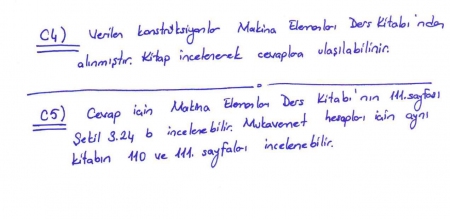 C4) Verilen konstrüksiyonlar Makina Elemanları Ders Kitabı'ndan
alınmıştır. Kitap incelenerek cevaplara ulaşılabilinir.
C5) Cevap için Makina Elemanları Ders Kitabı'nın 111. sayfası
Şekil 3.24 b incelenebilir. Mukavemet hesapları için aynı
kitabın 110 ve 111. sayfaları incelenebilir.